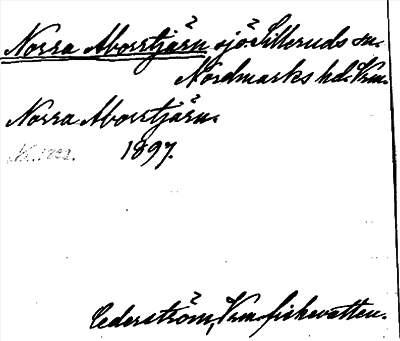 Norra Aborrtjärn sjö Silleruds sn.
Nordmarks hd. Vrm.
Norra Aborrtjärn.
1897.
Cederström, Vrm. fiskevatten.